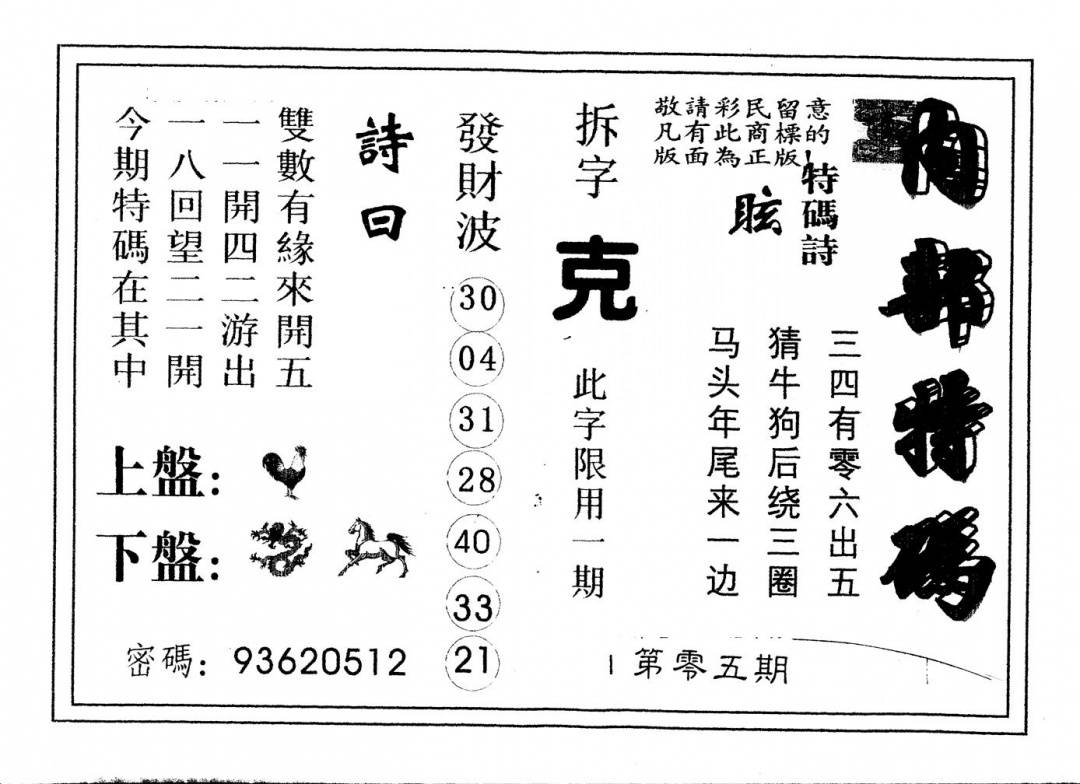 內部特碼
敬請彩民留意
凡有此商標的
版面為正版
特碼詩
眩
三四有零六出五
猜牛狗后绕三圈
马头年尾来一边
拆字
克
此字限用一期
第零五期
發財波
30
04
31
28
40
33
21
詩曰
雙數有緣來開五
一一開四二游出
一八回望二一開
今期特碼在其中
上盤:
下盤:
密碼: 93620512